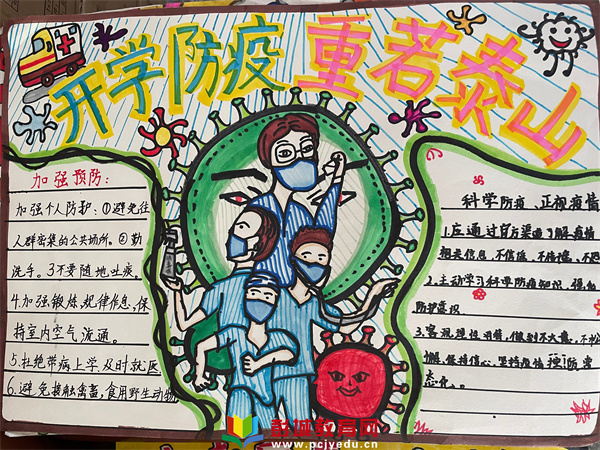 开学防疫 重若泰山
加强预防:
加强个人防护:①避免往
人群密集的公共场所。②勤
洗手。3不要随地吐痰。
4.加强锻炼,规律作息,保
持室内空气流通。
5.拒绝带病上学及时就医
6.避免接触禽畜,食用野生动物
科学防疫、正视疫情
1.应通过官方渠道了解疫情
相关信息,不信谣、不传谣、不
2.主动学习科学防疫知识,强化
防护意识
3.客观理性
解,保持信心,坚持
态
www.pcjyedu.cn